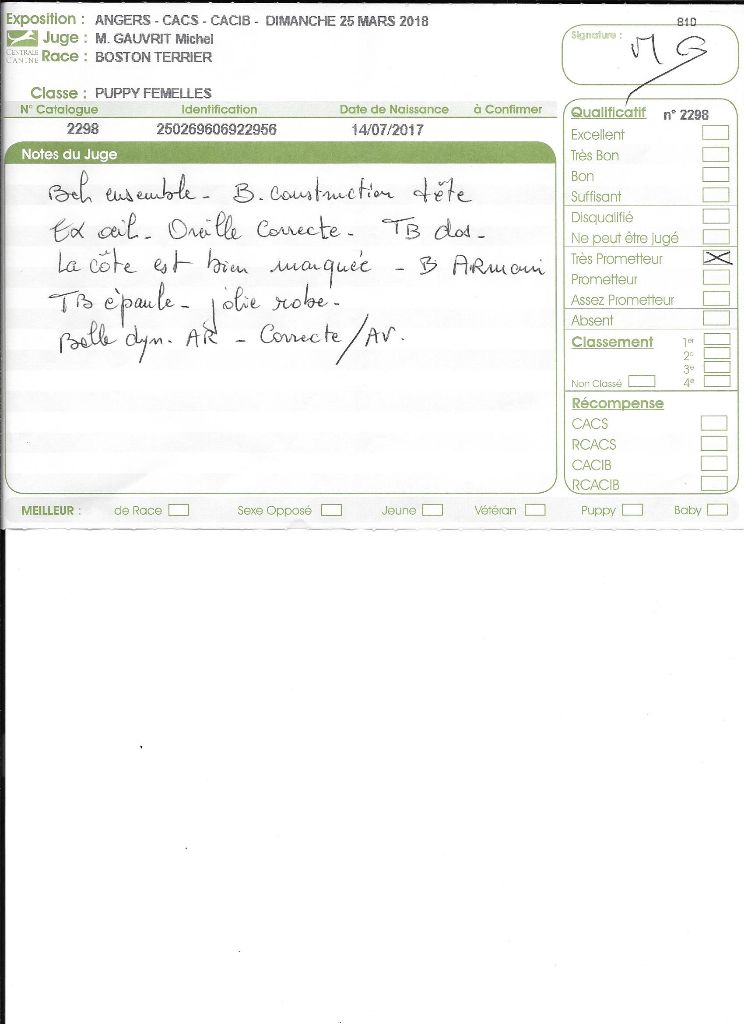 Exposition : ANGERS - CACS - CACIB - DIMANCHE 25 MARS 2018
810
Juge : M. GAUVRIT Michel
CENTRALE CANINE
Race : BOSTON TERRIER
Signature : M G
Classe : PUPPY FEMELLES
N° Catalogue Identification Date de Naissance à Confirmer
2298 250269606922956 14/07/2017
Notes du Juge
Bel ensemble - B. construction tête
Ex œil - Oreille Correcte - TB dos -
La côte est bien marquée - B
TB épaule - jolie robe -
Belle dyn. AR - Correcte / AV.
Qualificatif n° 2298
Excellent
Très Bon
Bon
Suffisant
Disqualifié
Ne peut être jugé
Très Prometteur
Prometteur
Assez Prometteur
Absent
Classement 1er
2e
3e
Non Classé 4e
Récompense
CACS
RCACS
CACIB
RCACIB
MEILLEUR : de Race Sexe Opposé Jeune Vétéran Puppy Baby